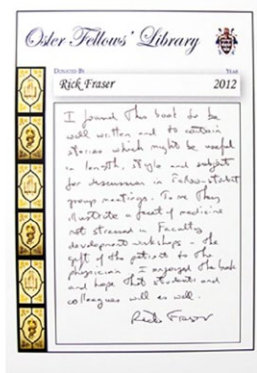 Osler Fellows' Library
DONATED BY YEAR
Rick Fraser 2012
I found this book to be
well written and to contain
stories which might be useful
in length, style and subject
for discussion in Fellow-student
group meetings. To me they
illustrate a facet of medicine
not stressed in Faculty
development workshops - the
gift of the patient to the
physician. I enjoyed the book
and hope that students and
colleagues will as well.
Rick Fraser